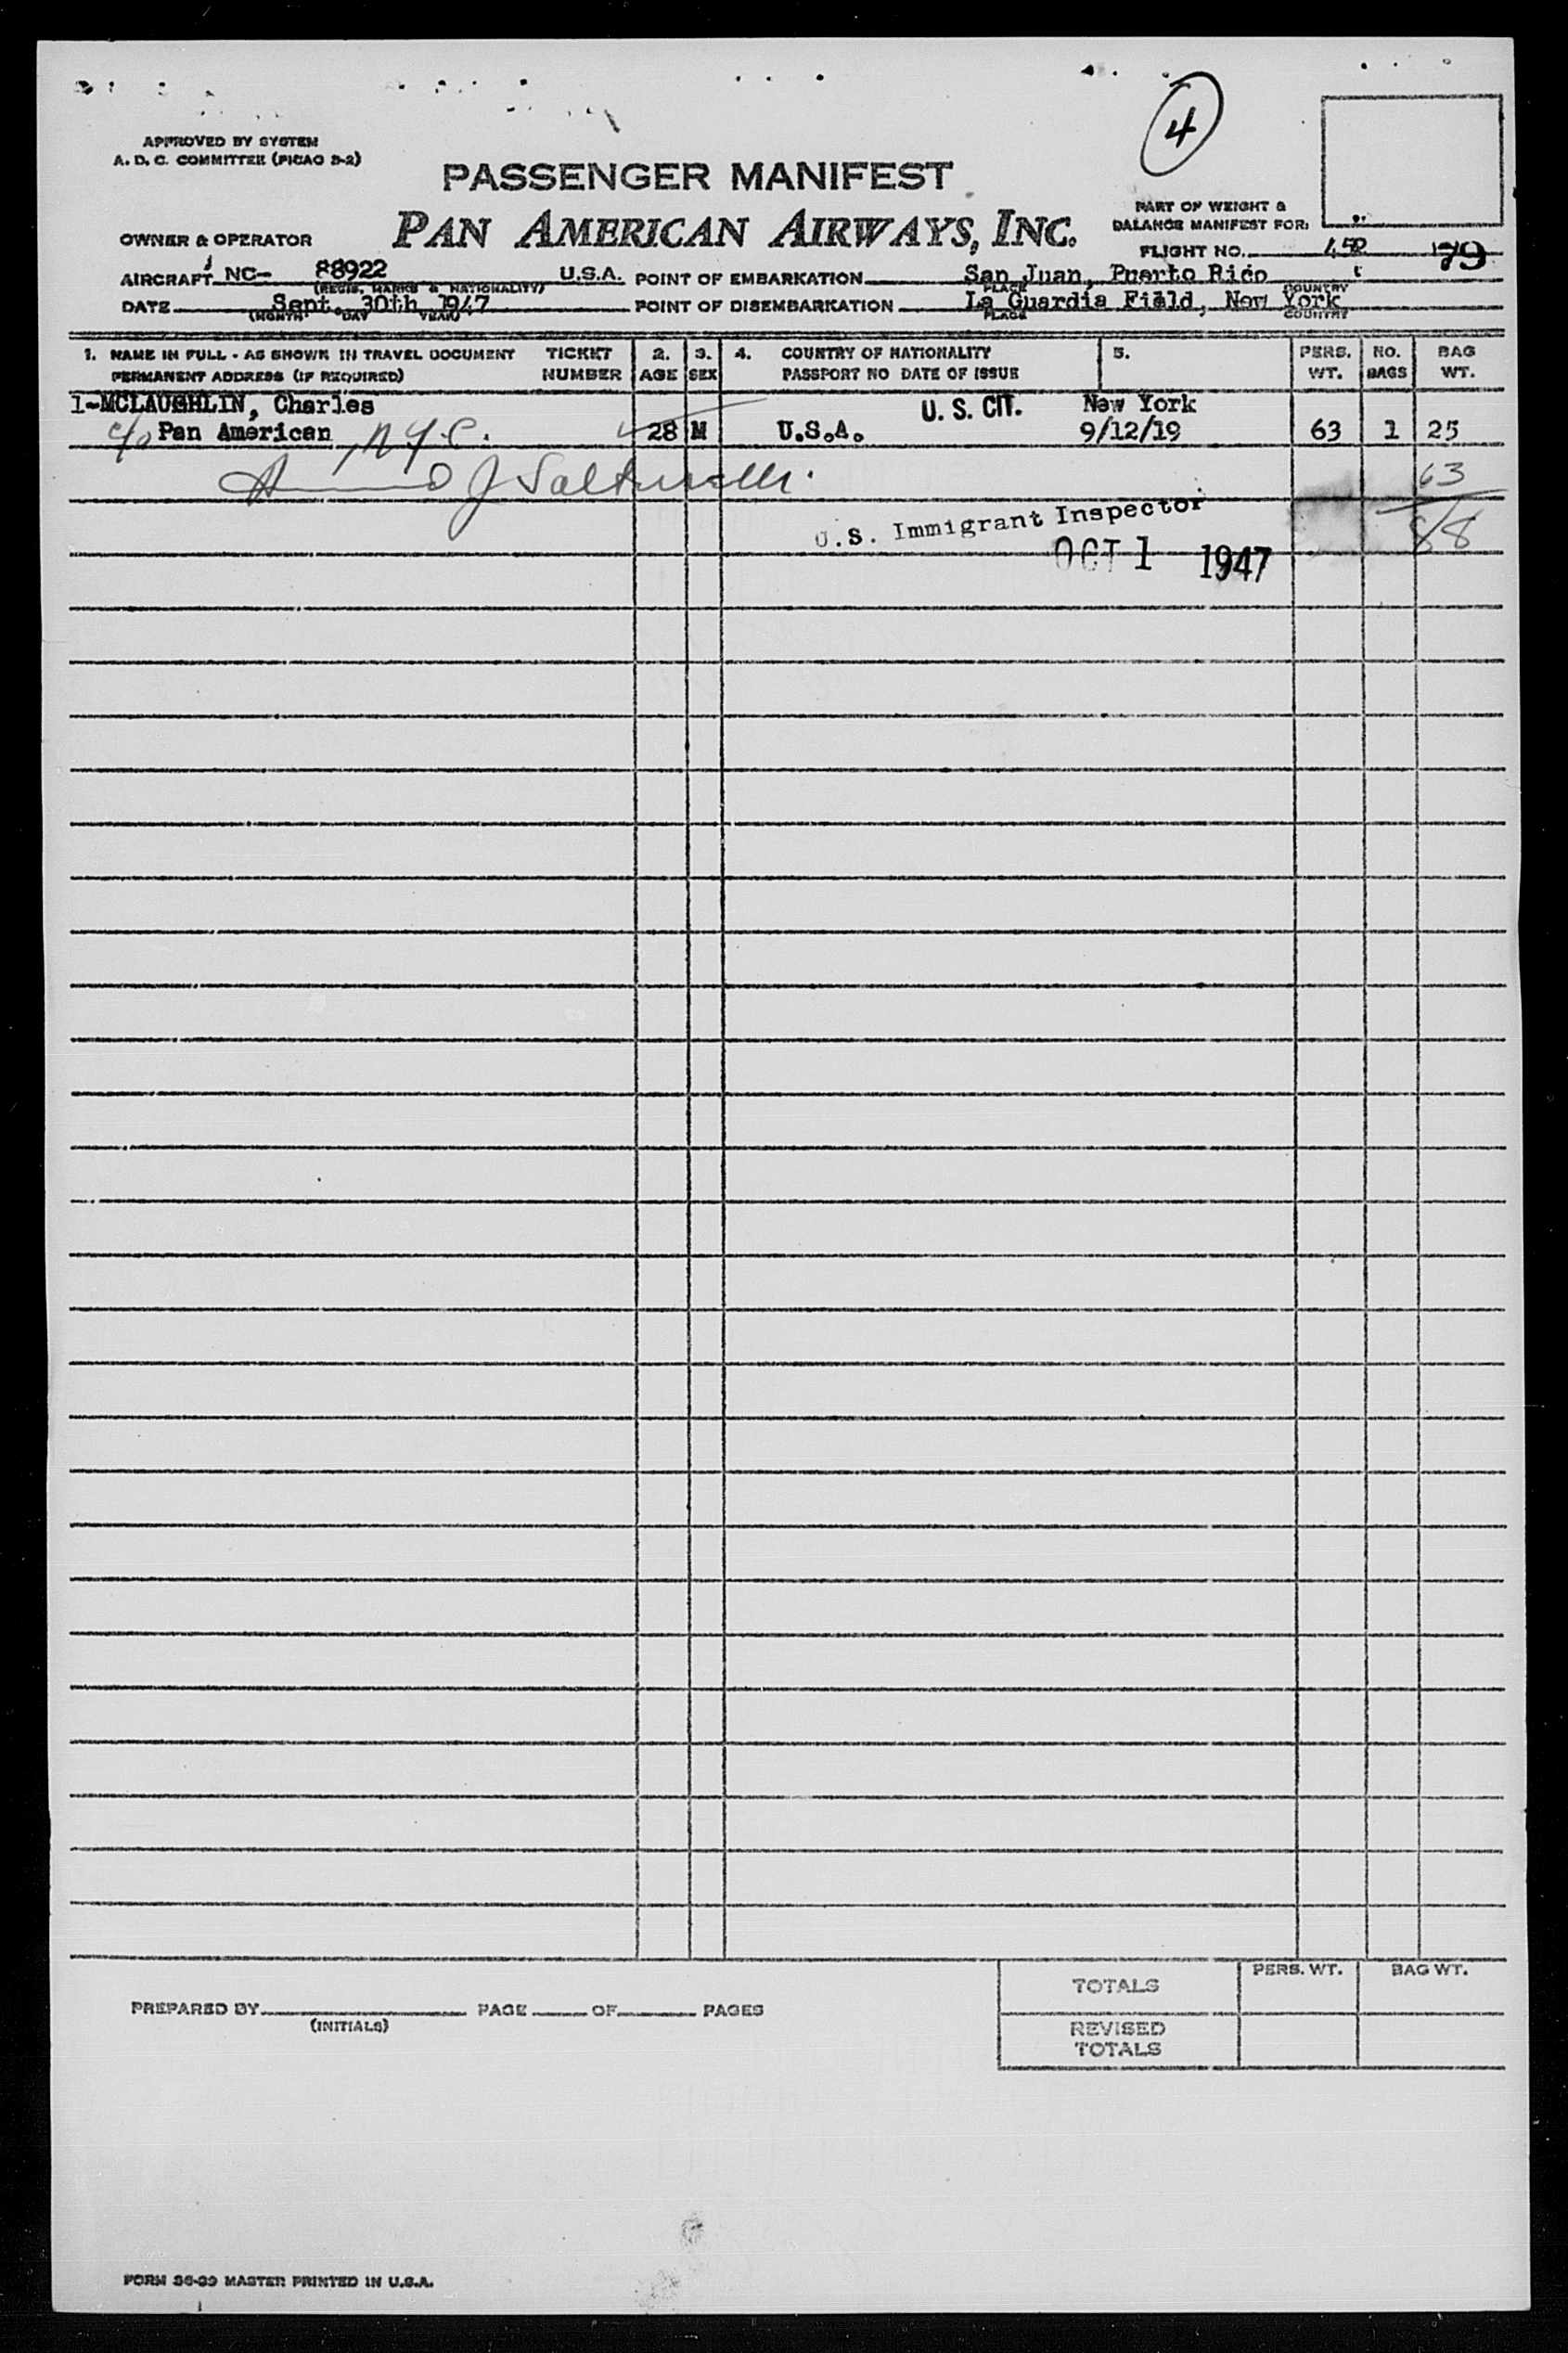 4
APPROVED BY SYSTEM
A. D. C. COMMITTEE (PICAO 3-2)
PASSENGER MANIFEST
PAN AMERICAN AIRWAYS, INC.
PART OF WEIGHT &
BALANCE MANIFEST FOR:
OWNER & OPERATOR
FLIGHT NO. 452 79
AIRCRAFT NC- 88922 U.S.A. POINT OF EMBARKATION San Juan, Puerto Rico
(REGIS. MARKS & NATIONALITY) PLACE COUNTRY
DATE Sept. 30th 1947 POINT OF DISEMBARKATION La Guardia Field, New York
(MONTH DAY YEAR) PLACE COUNTRY
1. NAME IN FULL - AS SHOWN IN TRAVEL DOCUMENT TICKET 2. 3. 4. COUNTRY OF NATIONALITY 5. PERS. NO. BAG
PERMANENT ADDRESS (IF REQUIRED) NUMBER AGE SEX PASSPORT NO DATE OF ISSUE WT. BAGS WT.
1-MCLAUGHLIN, Charles U. S. CIT. New York
c/o Pan American N.Y.C. 28 M U.S.A. 9/12/19 63 1 25
J 63
U.S. Immigrant Inspector 88
OCT 1 1947
TOTALS PERS. WT. BAG WT.
PREPARED BY PAGE OF PAGES
(INITIALS)
REVISED
TOTALS
FORM 36-39 MASTER PRINTED IN U.S.A.